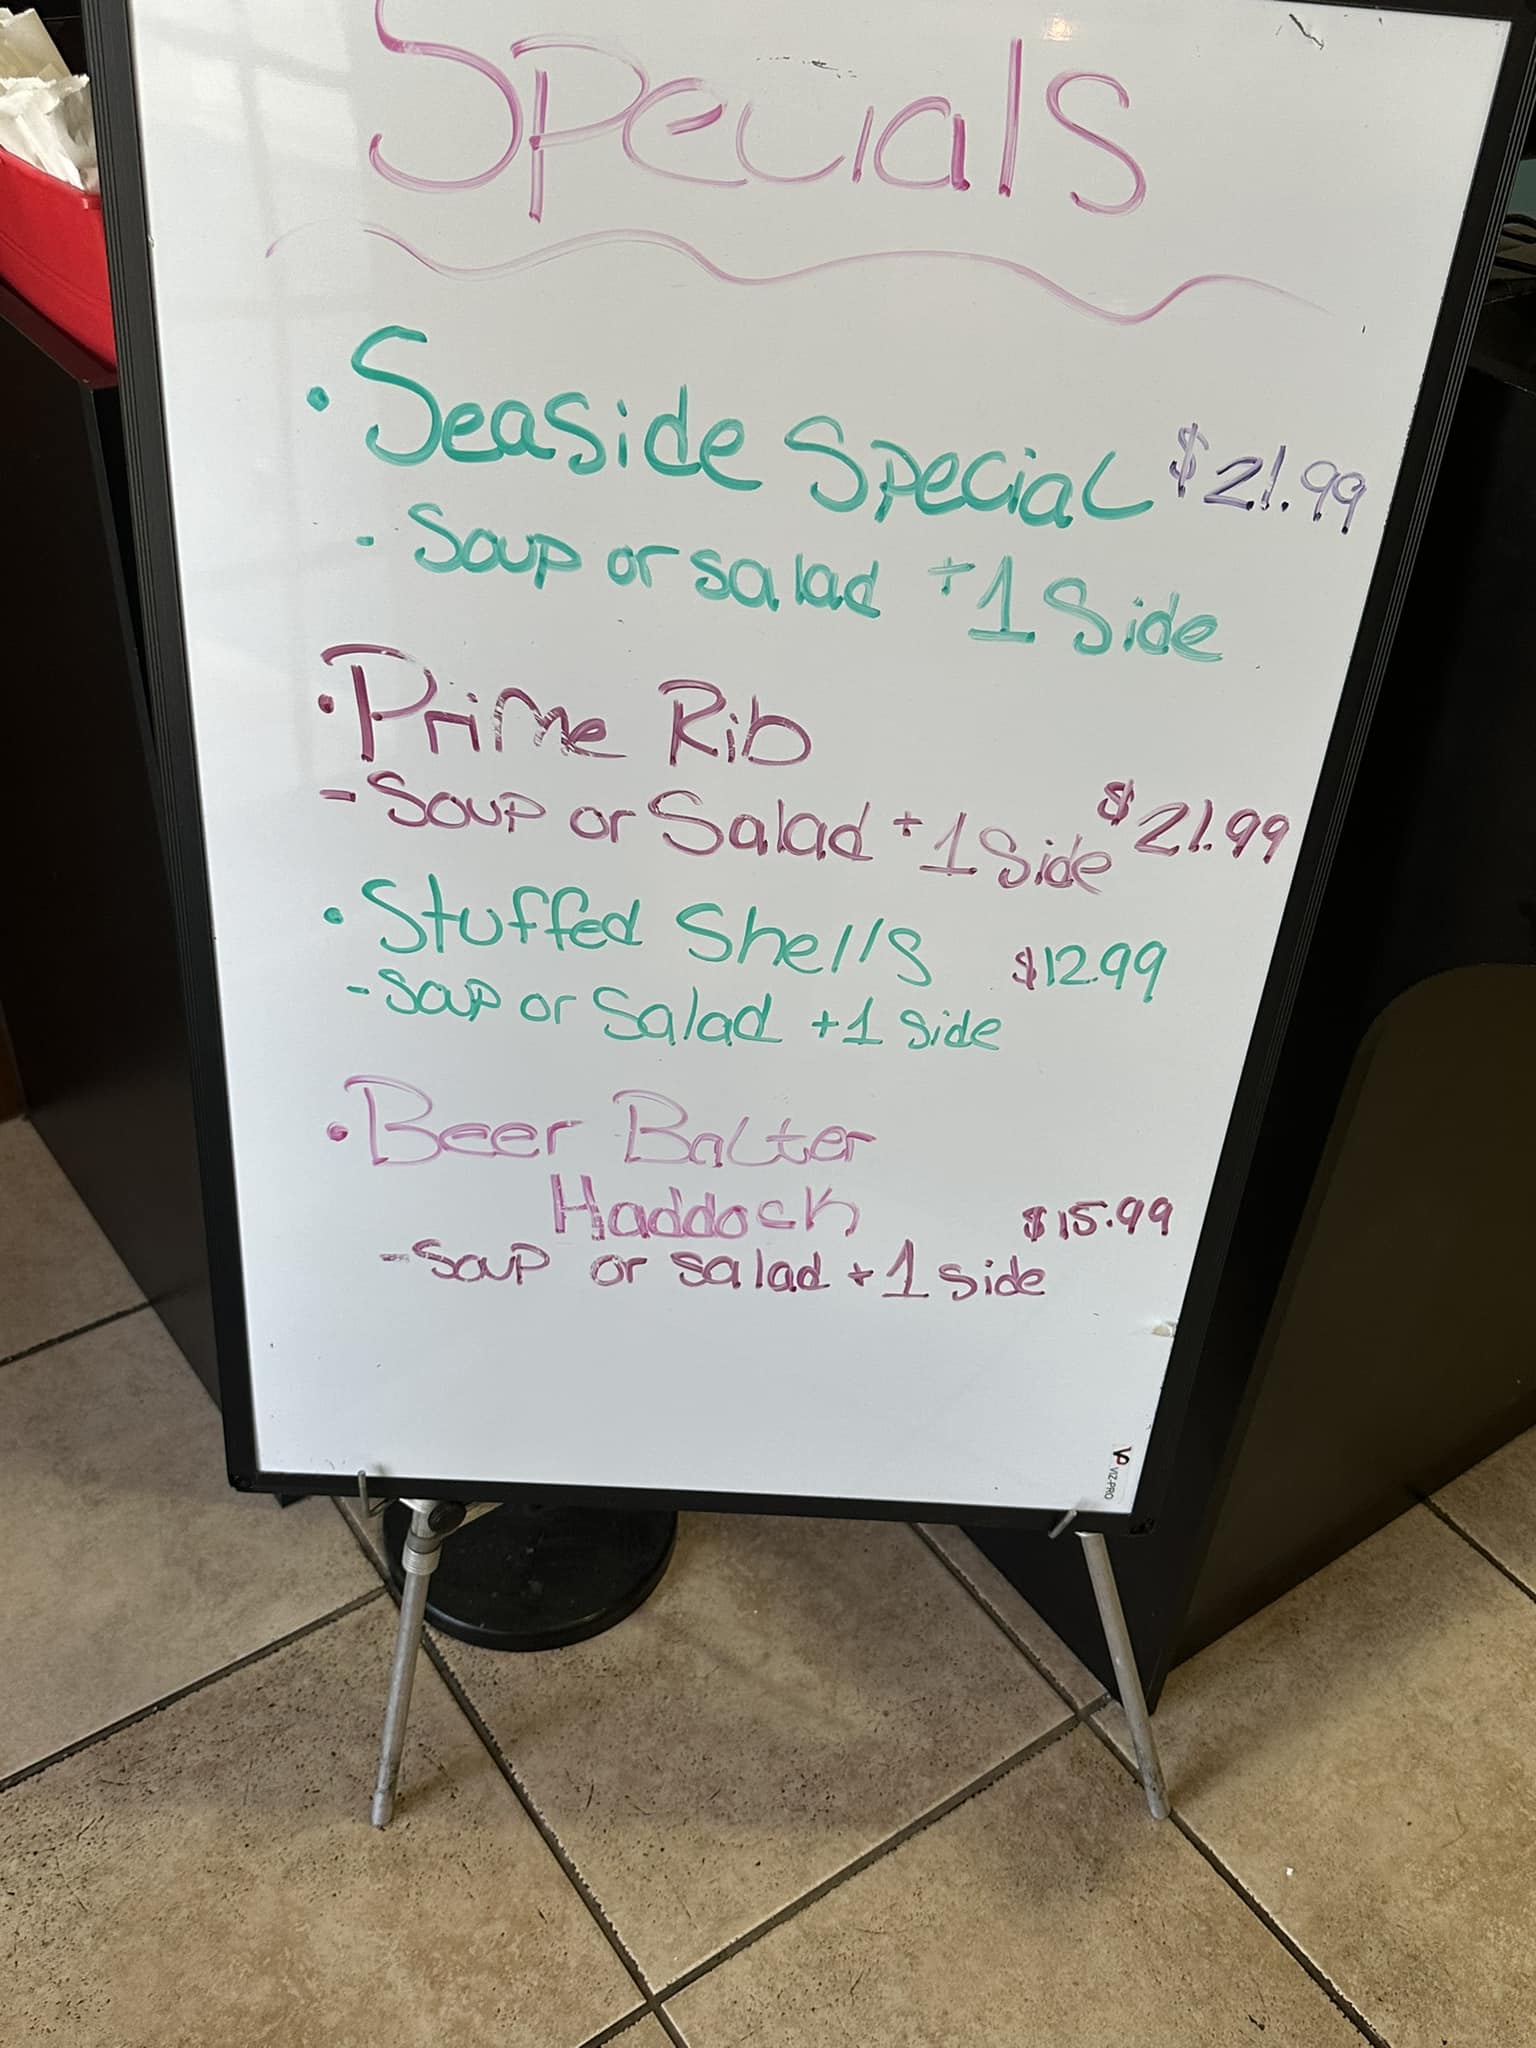 Specials
• Seaside Special $21.99
- Soup or salad + 1 Side
• Prime Rib
- Soup or Salad + 1 Side $21.99
• Stuffed Shells $12.99
- Soup or Salad + 1 Side
• Beer Batter
Haddock $15.99
- Soup or salad + 1 side
VIZ-PRO